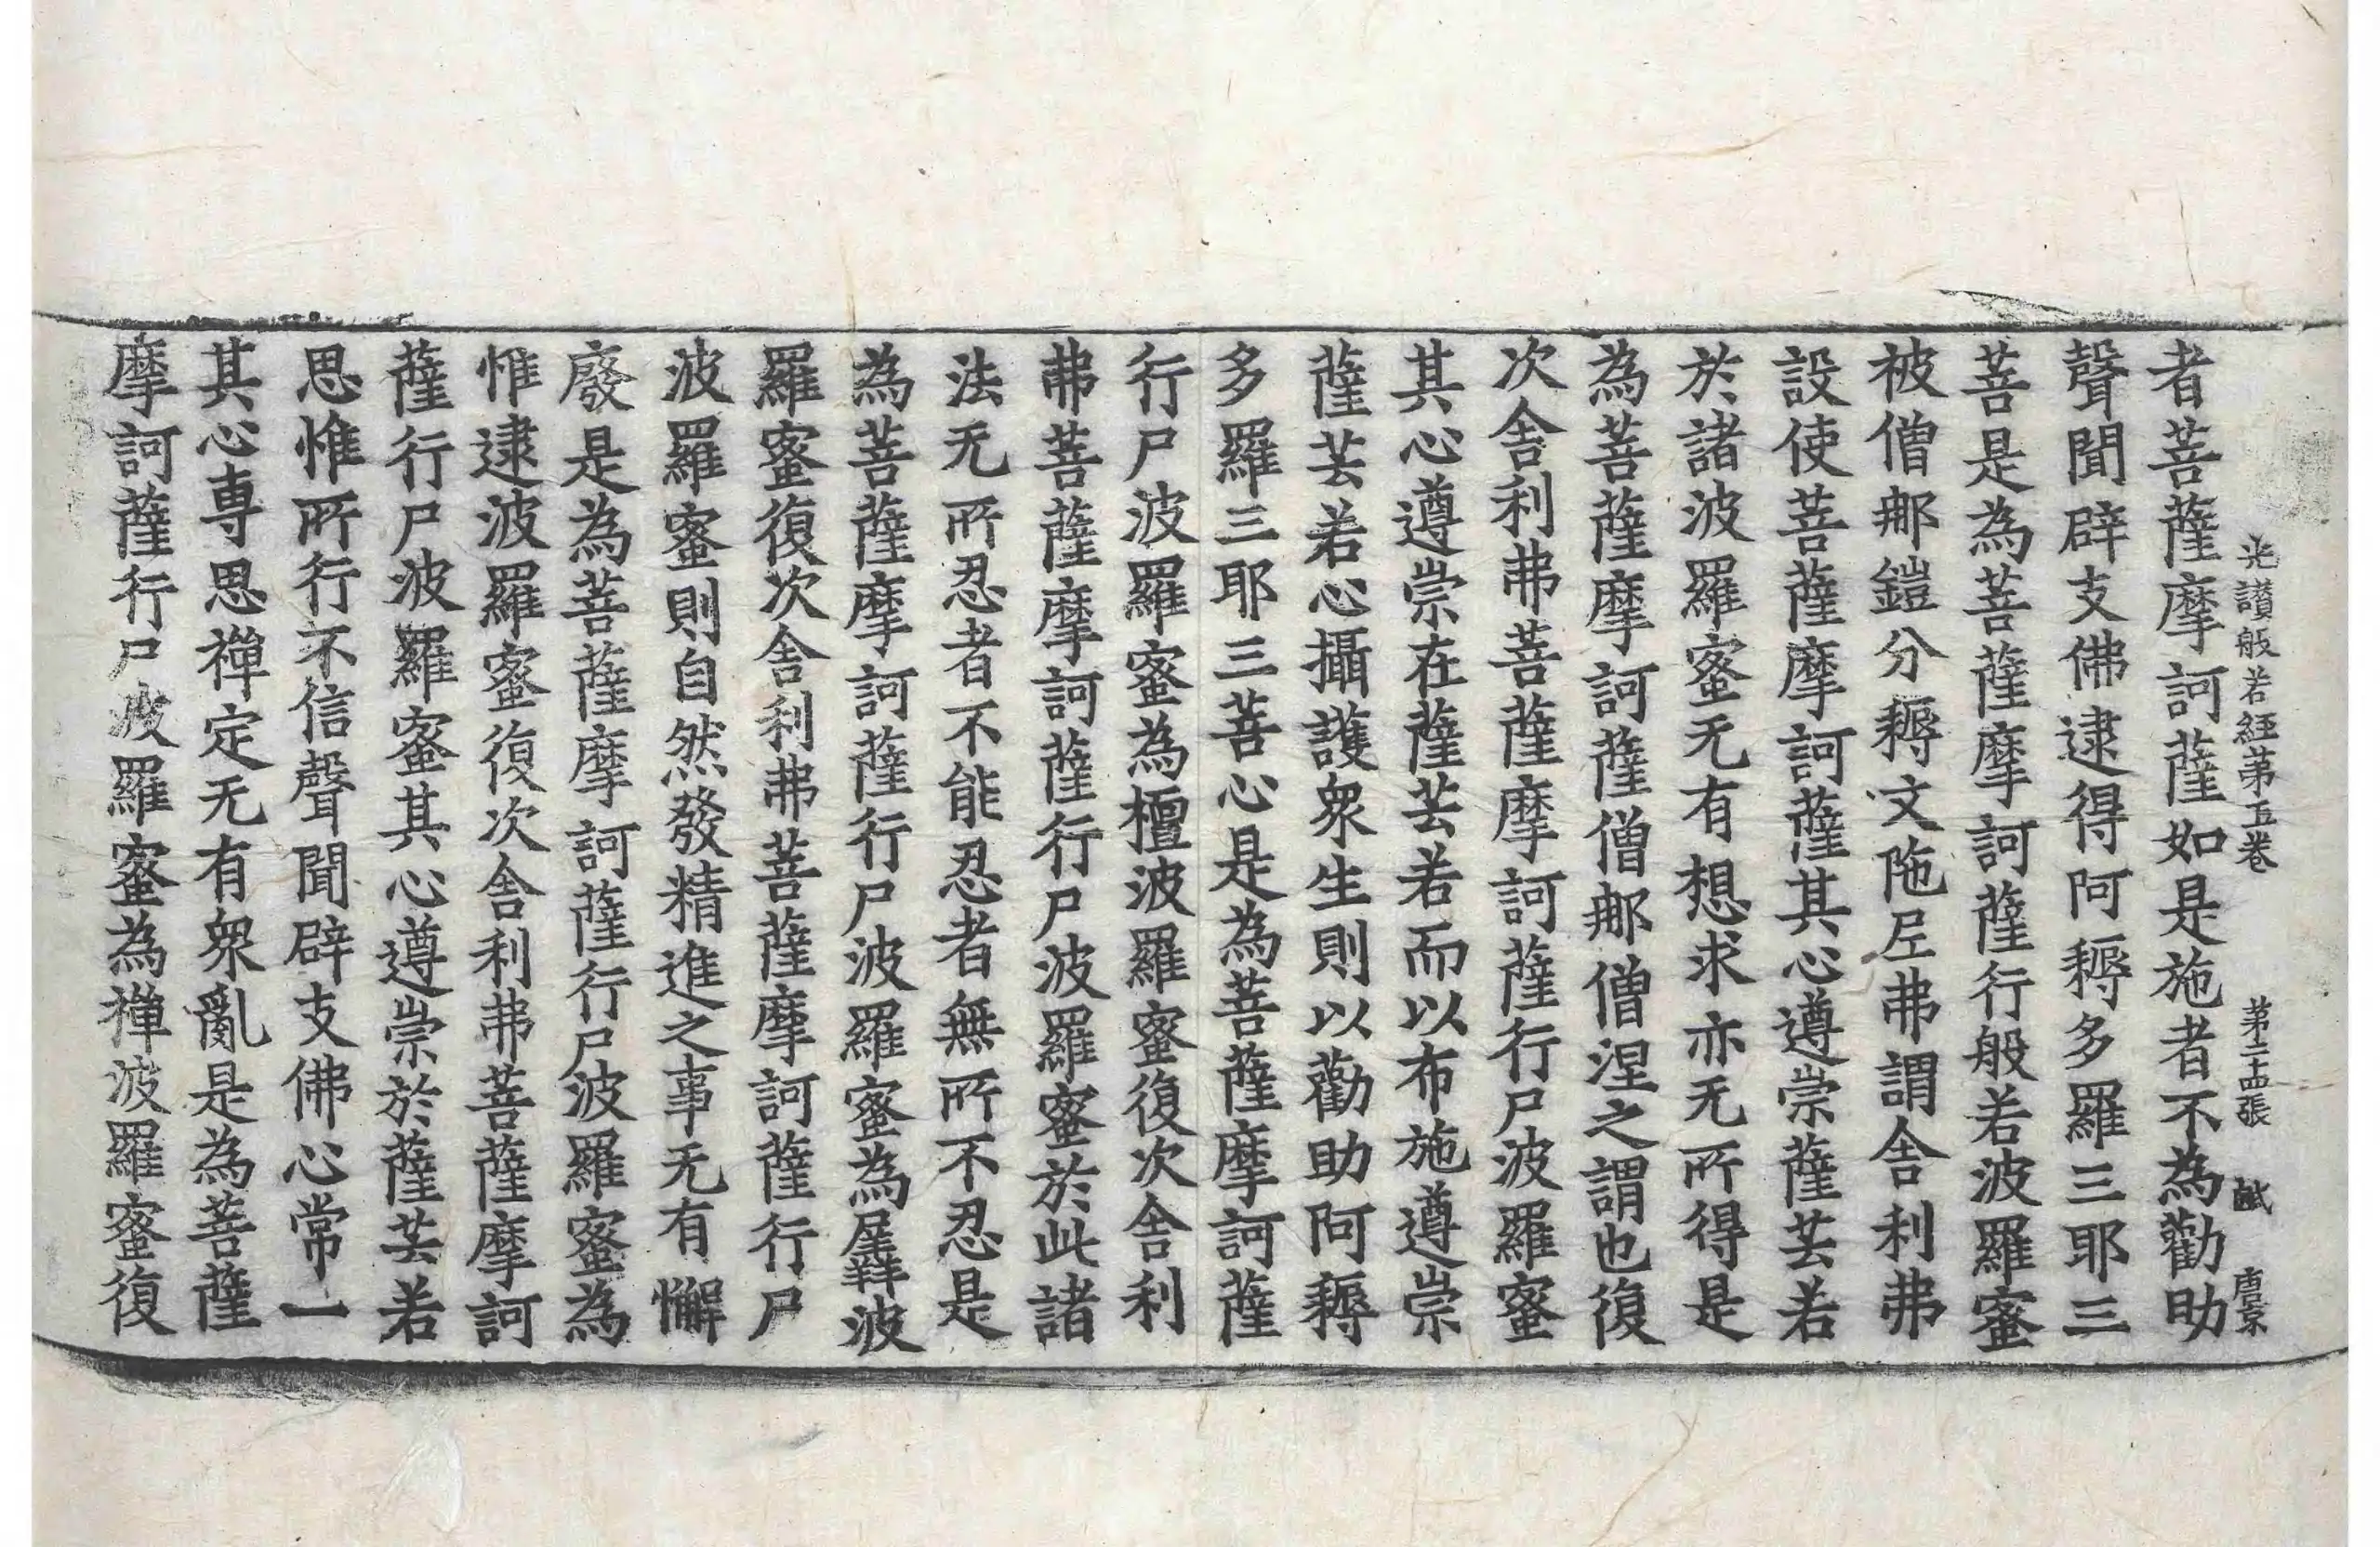 光讃般若經苐五卷　苐二十四張　醎　唐京
者菩薩摩訶薩如是施者不為勸助
聲聞辟支佛逮得阿耨多羅三耶三
菩是為菩薩摩訶薩行般若波羅蜜
被僧那鎧分耨文陁𡰱弗謂舎利弗
設使菩薩摩訶薩其心遵崇薩芸若
於諸波羅蜜无有想求亦无所得是
為菩薩摩訶薩僧那僧涅之謂也復
次舎利弗菩薩摩訶薩行尸波羅蜜
其心遵崇在薩芸若而以布施遵崇
薩芸若心攝護衆生則以勸助阿耨
多羅三耶三菩心是為菩薩摩訶薩
行尸波羅蜜為檀波羅蜜復次舎利
弗菩薩摩訶薩行尸波羅蜜於此諸
法无所忍者不能忍者無所不忍是
為菩薩摩訶薩行尸波羅蜜為羼波
羅蜜復次舎利弗菩薩摩訶薩行尸
波羅蜜則自然發精進之事无有懈
廢是為菩薩摩訶薩行尸波羅蜜為
惟逮波羅蜜復次舎利弗菩薩摩訶
薩行尸波羅蜜其心遵崇於薩芸若
思惟所行不信聲聞辟支佛心常一
其心專思禪定无有衆亂是為菩薩
摩訶薩行尸波羅蜜為禪波羅蜜復